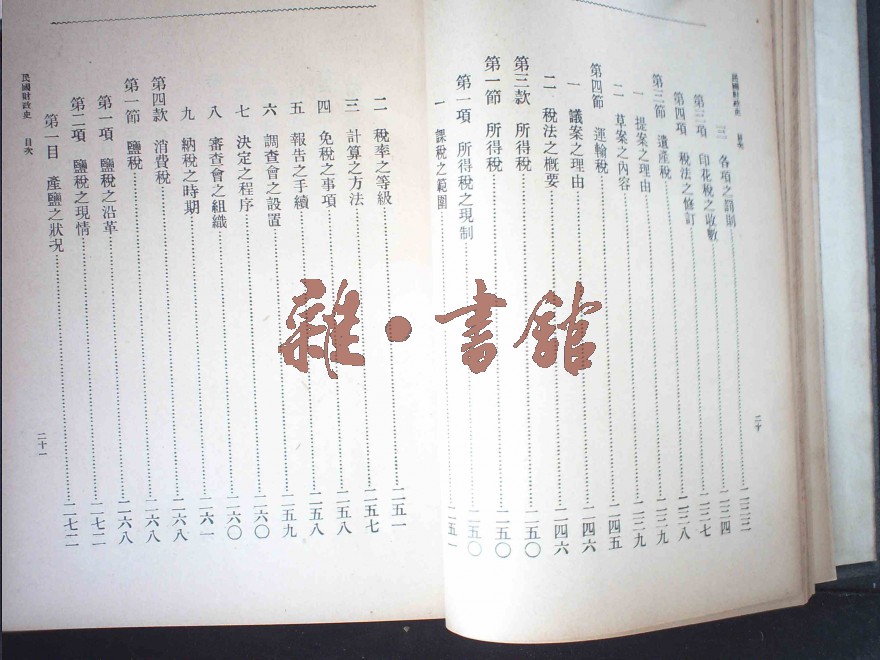 民國財政史 目次
二十
三 各項之罰則……二三三
第三項 印花稅之收數……二三四
第四項 稅法之修訂……二三七
第三節 遺產稅……二三八
一 提案之理由……二三九
二 草案之內容……二三九
第四節 運輸稅……二四五
一 議案之理由……二四六
二 稅法之概要……二四六
第三款 所得稅……二五〇
第一節 所得稅……二五〇
第一項 所得稅之現制……二五〇
一 課稅之範圍……二五一
二 稅率之等級……二五一
三 計算之方法……二五七
四 免稅之事項……二五八
五 報告之手續……二五八
六 調查會之設置……二五九
七 決定之程序……二六〇
八 審查會之組織……二六〇
九 納稅之時期……二六一
第四款 消費稅……二六八
第一節 鹽稅……二六八
第一項 鹽稅之沿革……二六八
第二項 鹽稅之現情……二七二
第一目 產鹽之狀況……二七二
民國財政史 目次
二十一
雜·書館